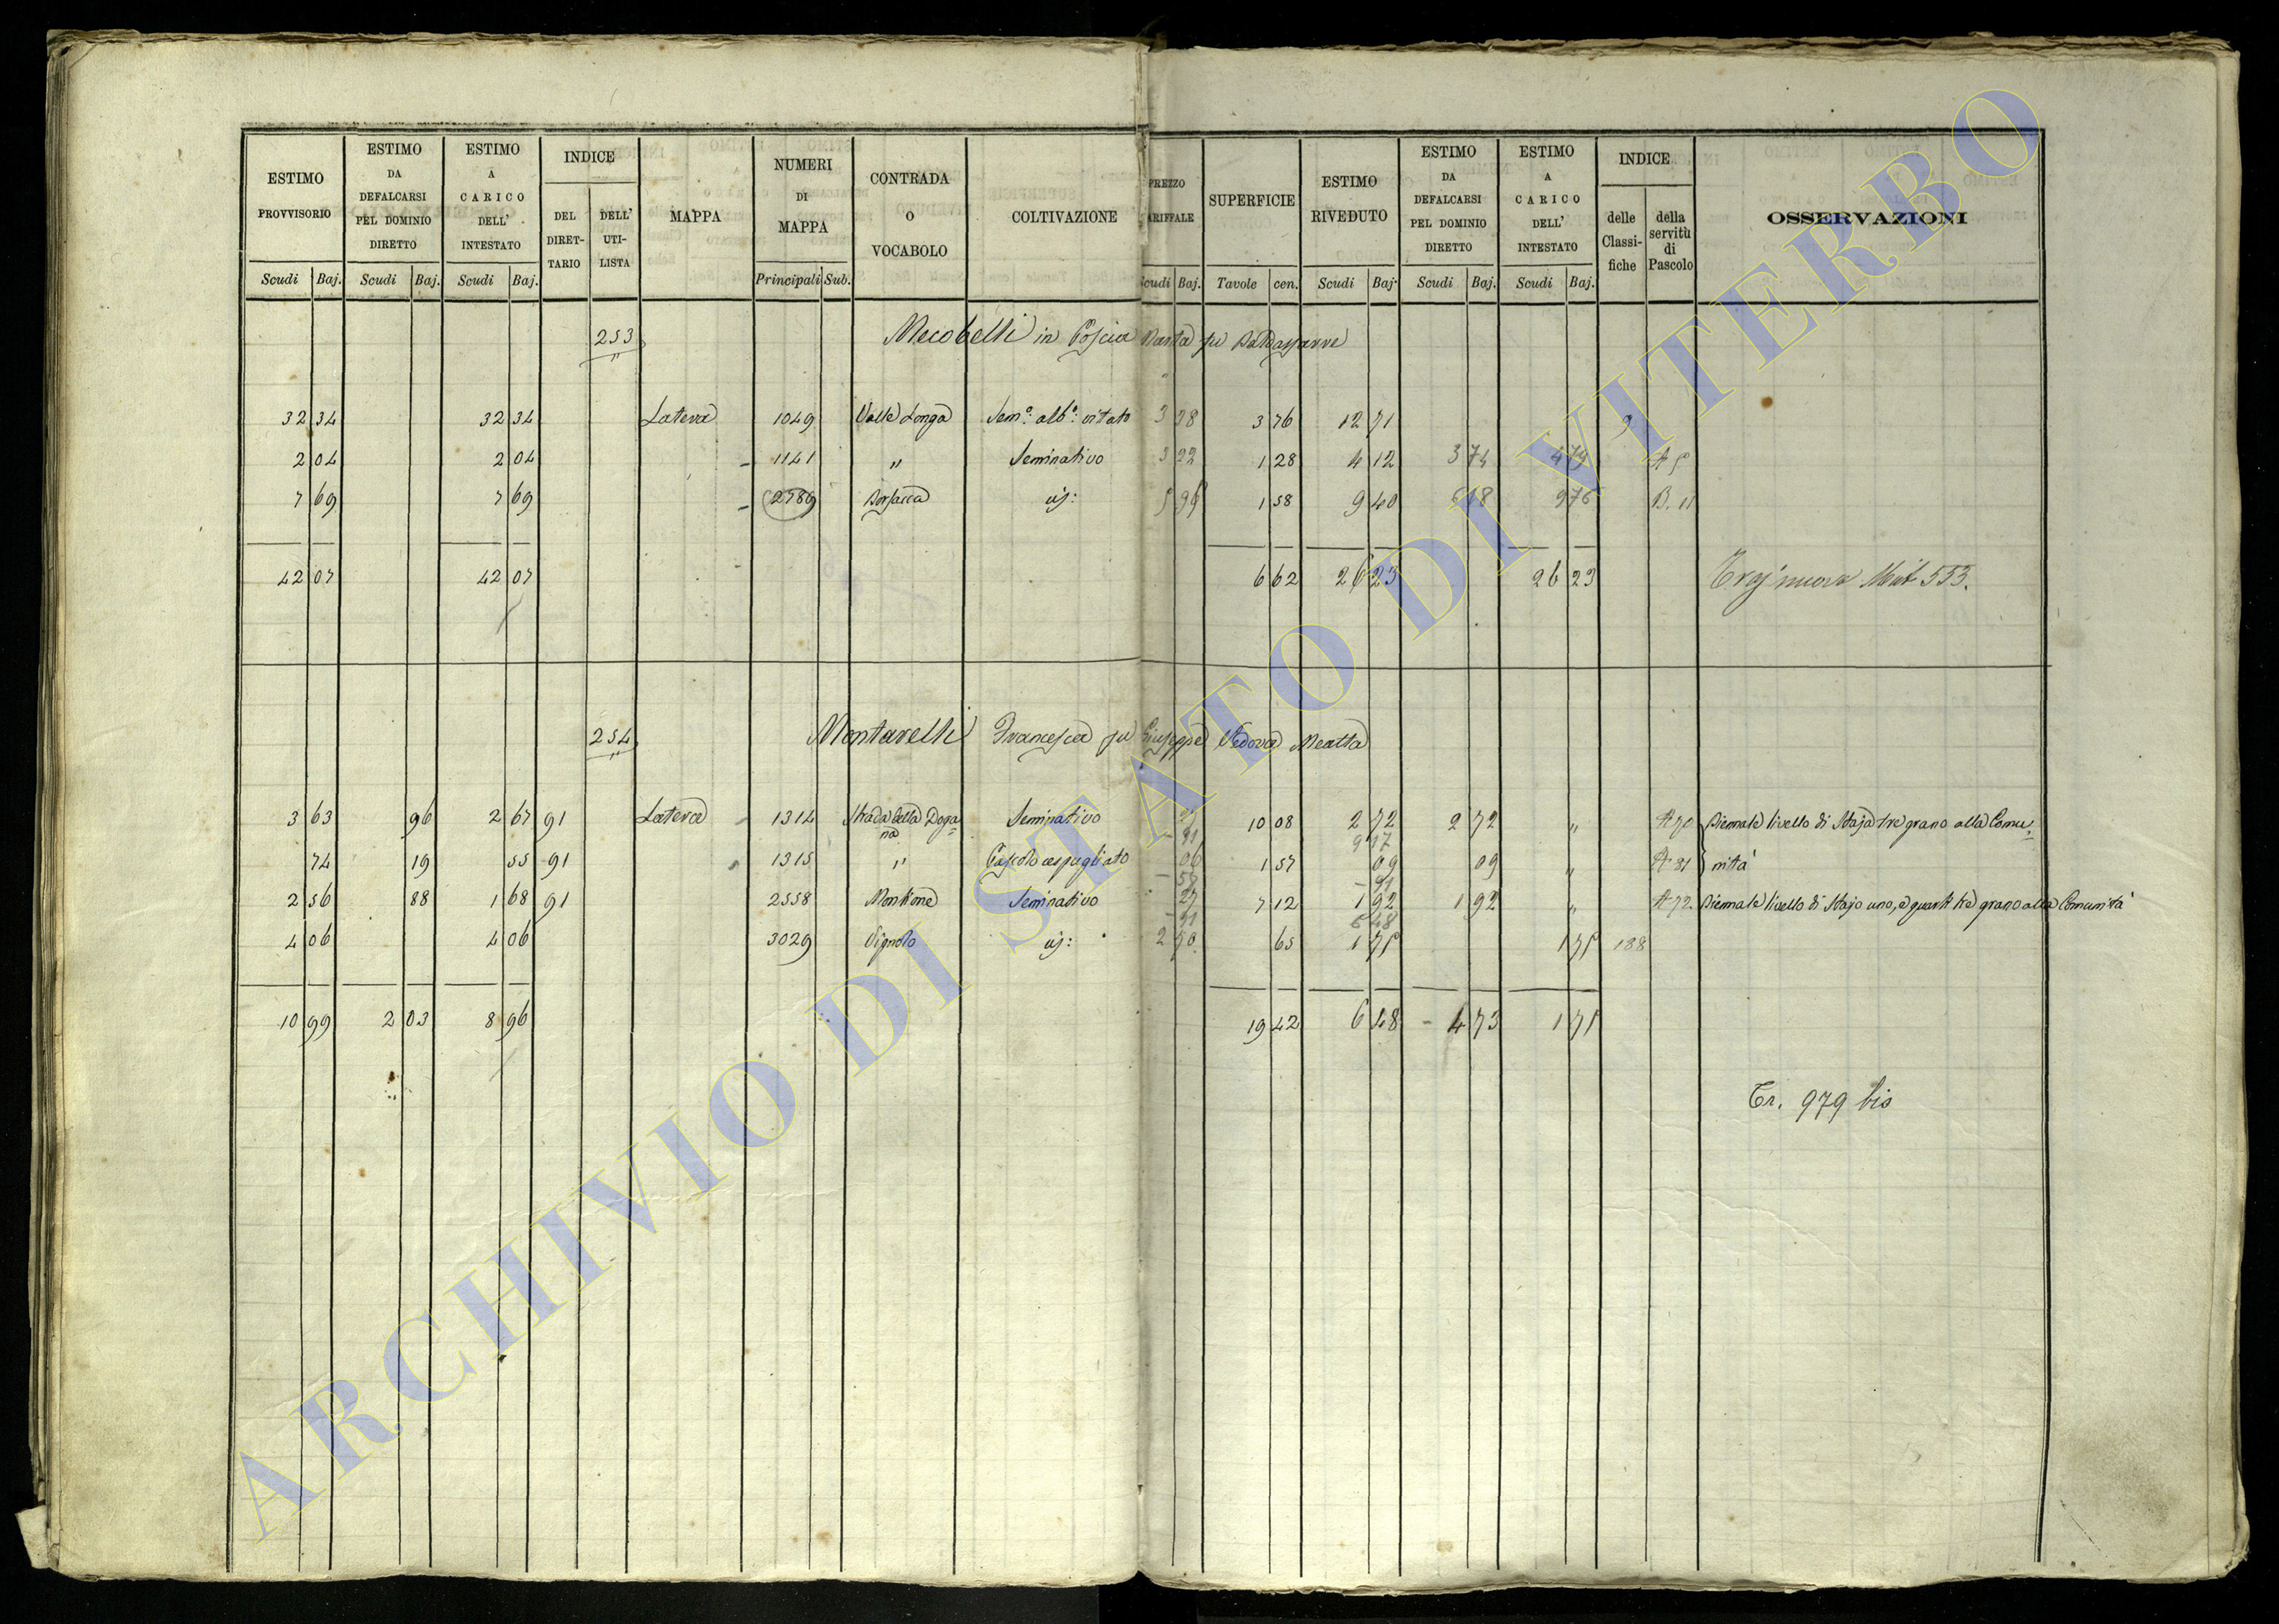 ESTIMO PROVVISORIO | ESTIMO DA DEFALCARSI PEL DOMINIO DIRETTO | ESTIMO A CARICO DELL' INTESTATO | INDICE | MAPPA | NUMERI DI MAPPA | CONTRADA O VOCABOLO | COLTIVAZIONE | PREZZO ARIFFALE | SUPERFICIE | ESTIMO RIVEDUTO | ESTIMO DA DEFALCARSI PEL DOMINIO DIRETTO | ESTIMO A CARICO DELL' INTESTATO | INDICE | OSSERVAZIONI
DEL DIRET-TARIO | DELL' UTI-LISTA | delle Classi-fiche | della servitù di Pascolo
Scudi | Baj. | Scudi | Baj. | Scudi | Baj. | Principali | Sub. | Scudi | Baj. | Tavole | cen. | Scudi | Baj. | Scudi | Baj. | Scudi | Baj.
253 Mecobelli in Coscia Marta fu Baldassarre
32 34 | 32 34 | Latera | 1049 | Valle Longa | Sem.o alb.o vitato | 3 38 | 3 76 | 12 71 | 9
2 04 | 2 04 | 1141 | " | Seminativo | 3 22 | 1 28 | 4 12 | 3 74 | 4 79 | A 5
7 69 | 7 69 | 2789 | Borsacca | id: | 5 95 | 1 58 | 9 40 | 9 76 | B. 11
42 07 | 42 07 | 6 62 | 26 23 | 26 23 | 553.
254 Montarelli Francesca fu Giuseppe Vedova Meatta
3 63 | 96 | 2 67 | 91 | Latera | 1314 | Strada della Doga= | Seminativo | 10 08 | 2 72 | 2 72 | " | A 70 | Biennale livello di Staja tre grano alla Comu=
na
74 | 19 | 55 | 91 | 1315 | " | Pascolo cespugliato | 06 | 1 57 | 09 | 09 | " | A 81 | nità
2 56 | 88 | 1 68 | 91 | 2558 | Montione | Seminativo | 27 | 7 12 | 1 92 | 1 92 | " | A 72 | Biennale livello di Stajo uno, e quarti tre grano alla Comunità
4 06 | 4 06 | 3029 | Vignolo | id: | 2 70 | 65 | 1 75 | 1 75 | 188
10 99 | 2 03 | 8 96 | 19 42 | 6 48 | 4 73 | 1 75
Tr. 979 bis
ARCHIVIO DI STATO DI VITERBO